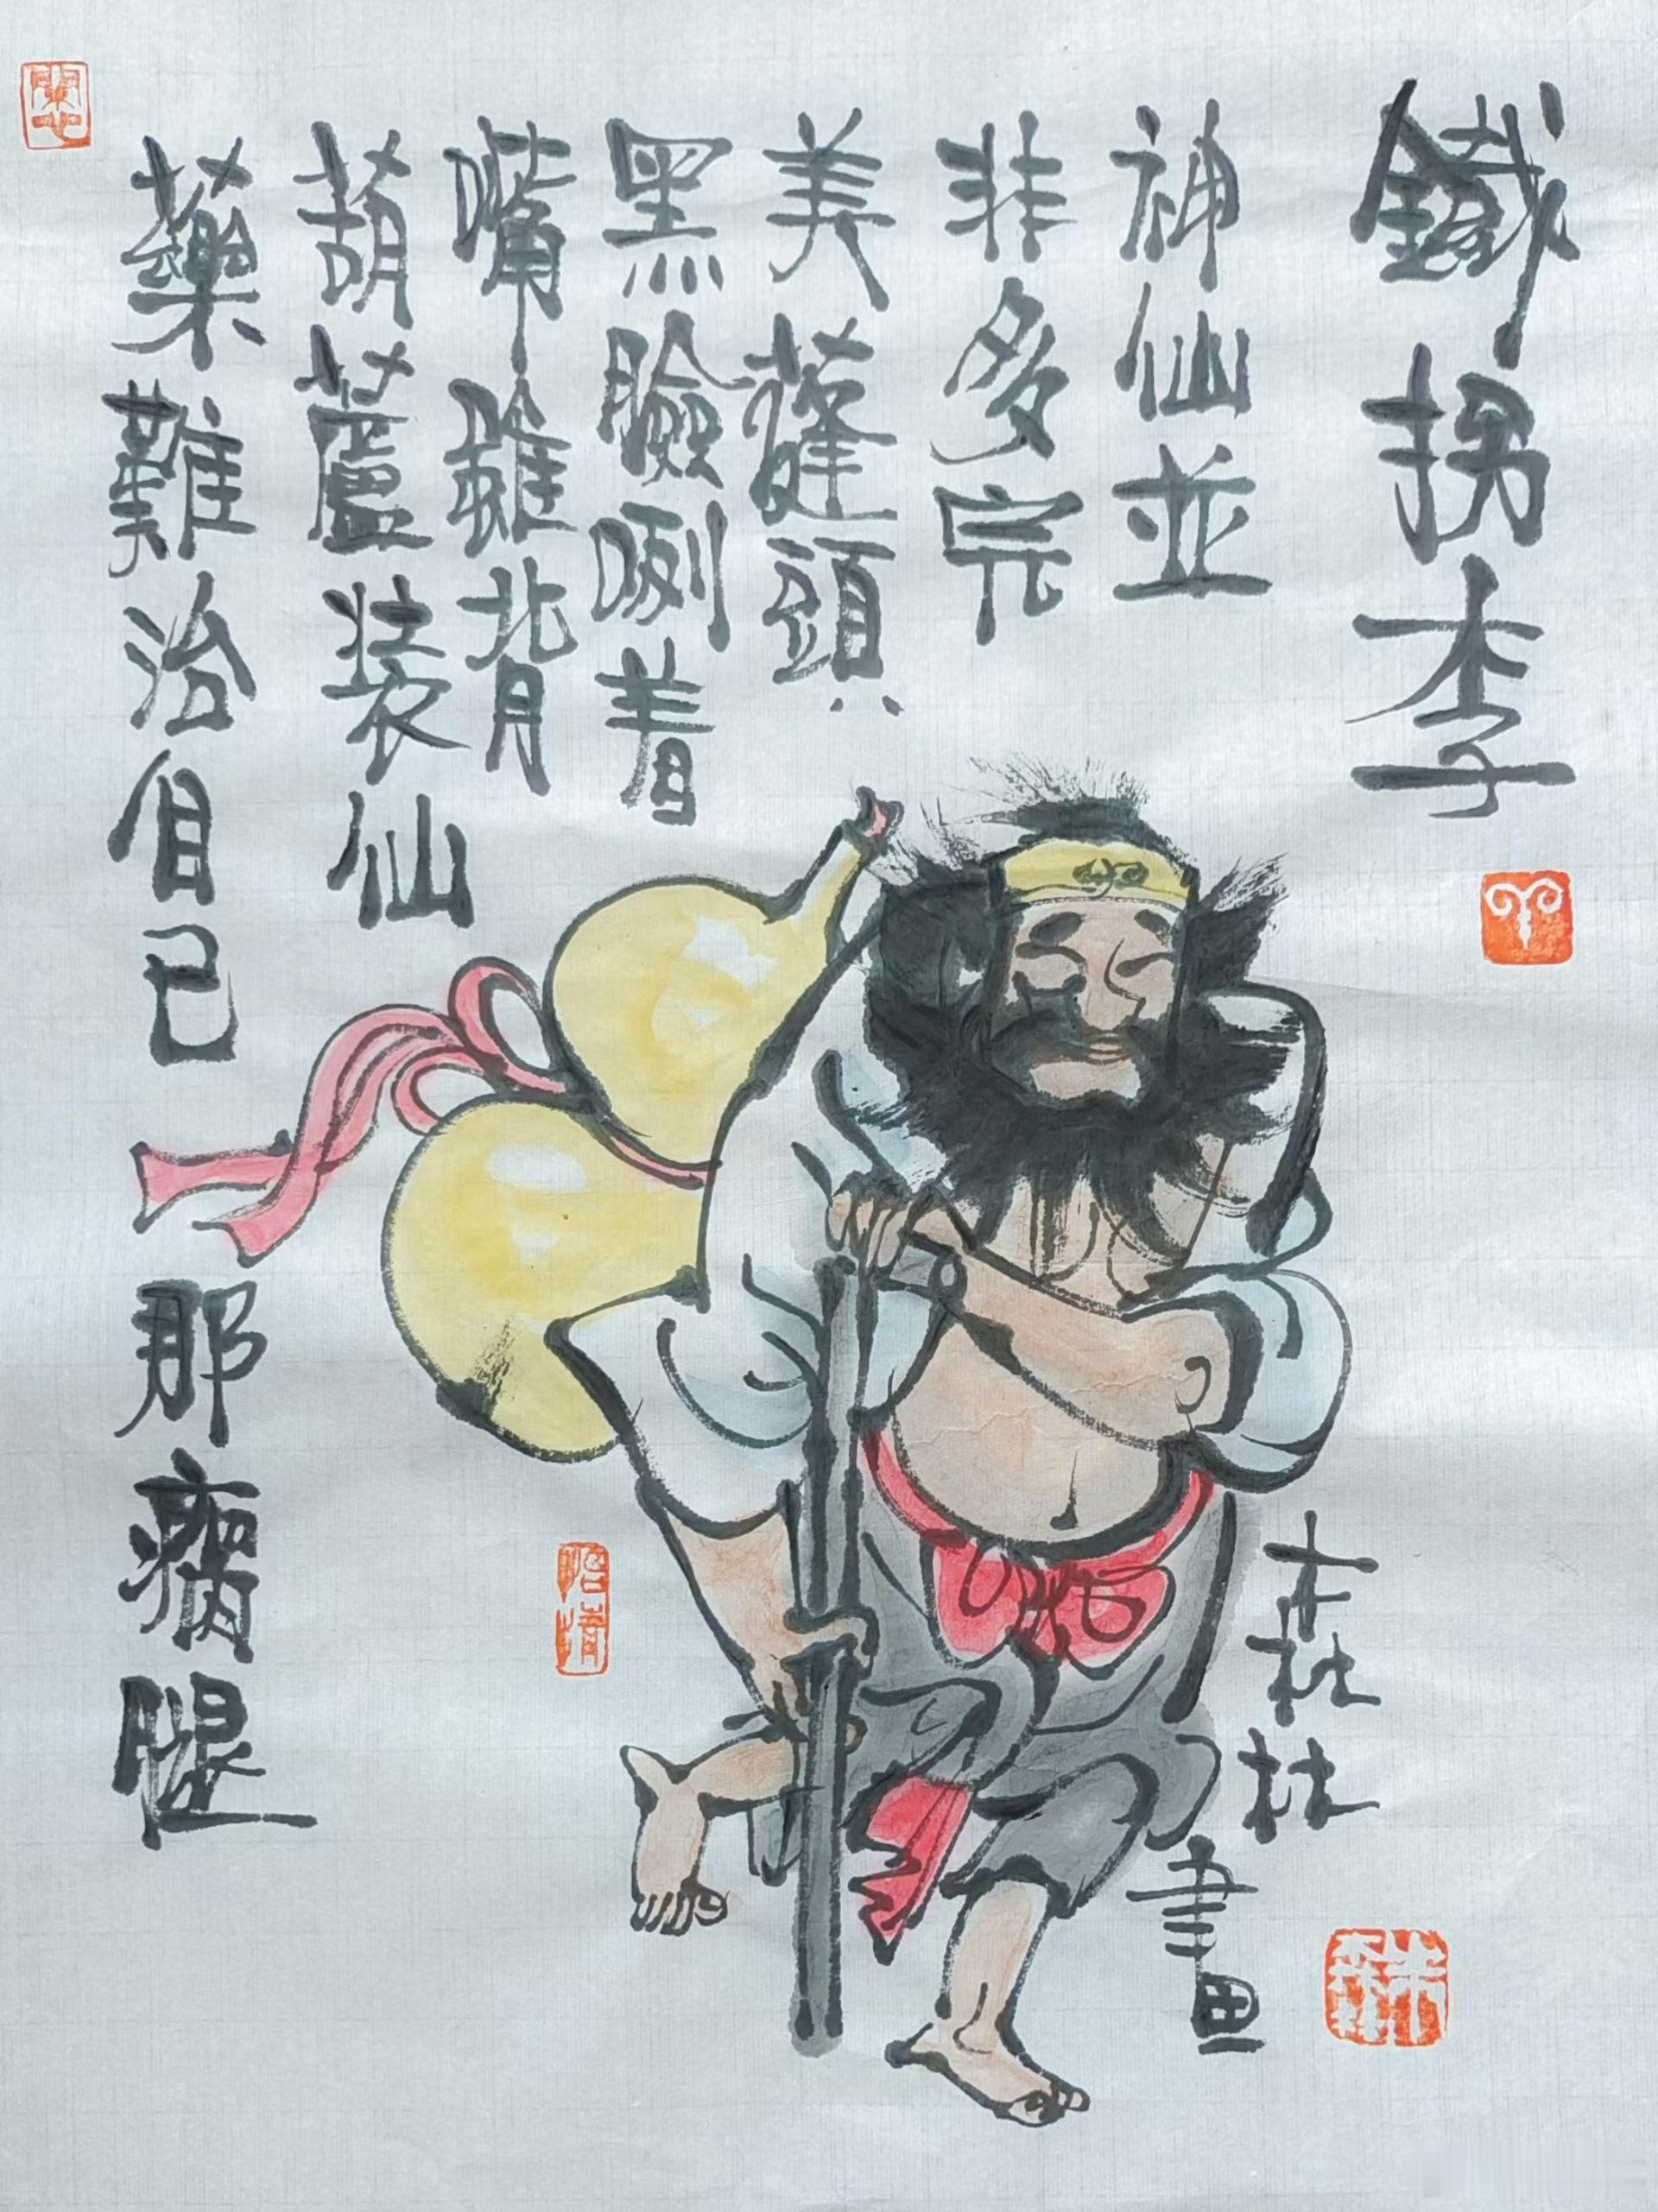 鐵拐李
神仙並
非多完
美蓬頭
黑臉咧着
嘴雖背
葫蘆裝仙
藥難治自己那瘸腿
林林畫
怡情